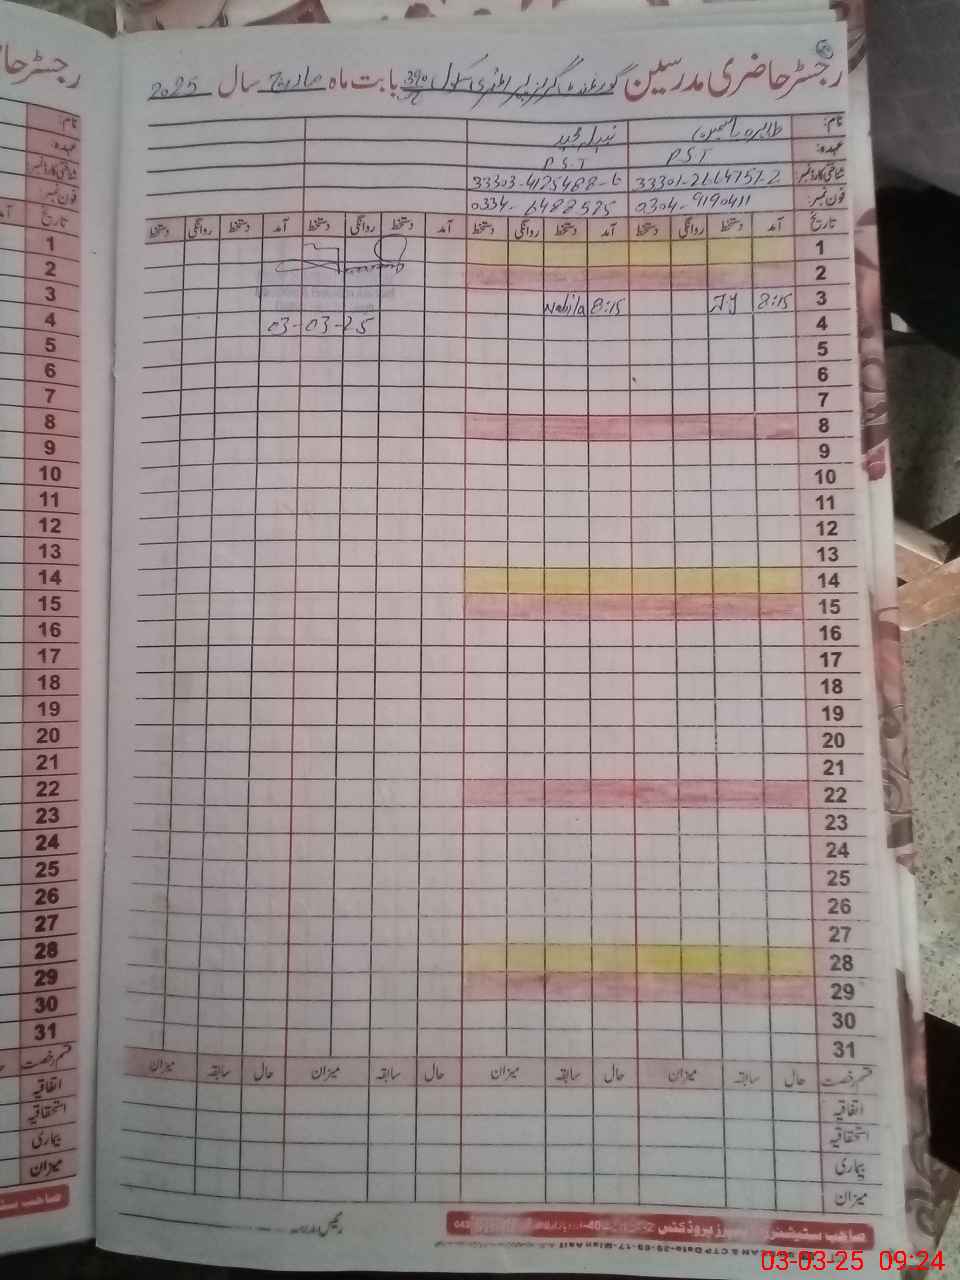 رجسٹر حاضری مدرسین گورنمنٹ گرلز پرائمری سکول 390 بابت ماہ مارچ سال 2025
نام:
عہدہ: PST PST
شناختی کارڈ نمبر: 33301-2664757-2 33303-4125488-6
فون نمبر: 0304-9190411 0334-6488525
تاریخ آمد دستخط روانگی دستخط آمد دستخط روانگی دستخط آمد دستخط روانگی دستخط آمد دستخط روانگی دستخط
1
2
3 8:15 8:15 Nabila
4 03-03-25
5
6
7
8
9
10
11
12
13
14
15
16
17
18
19
20
21
22
23
24
25
26
27
28
29
30
31
قسم رخصت حال سابقہ میزان حال سابقہ میزان حال سابقہ میزان حال سابقہ میزان
اتفاقیہ
استحقاقیہ
بیماری
میزان
رجسٹر حا
تاریخ
1
2
3
4
5
6
7
8
9
10
11
12
13
14
15
16
17
18
19
20
21
22
23
24
25
26
27
28
29
30
31
قسم رخصت
اتفاقیہ
استحقاقیہ
بیماری
میزان
03-03-25 09:24